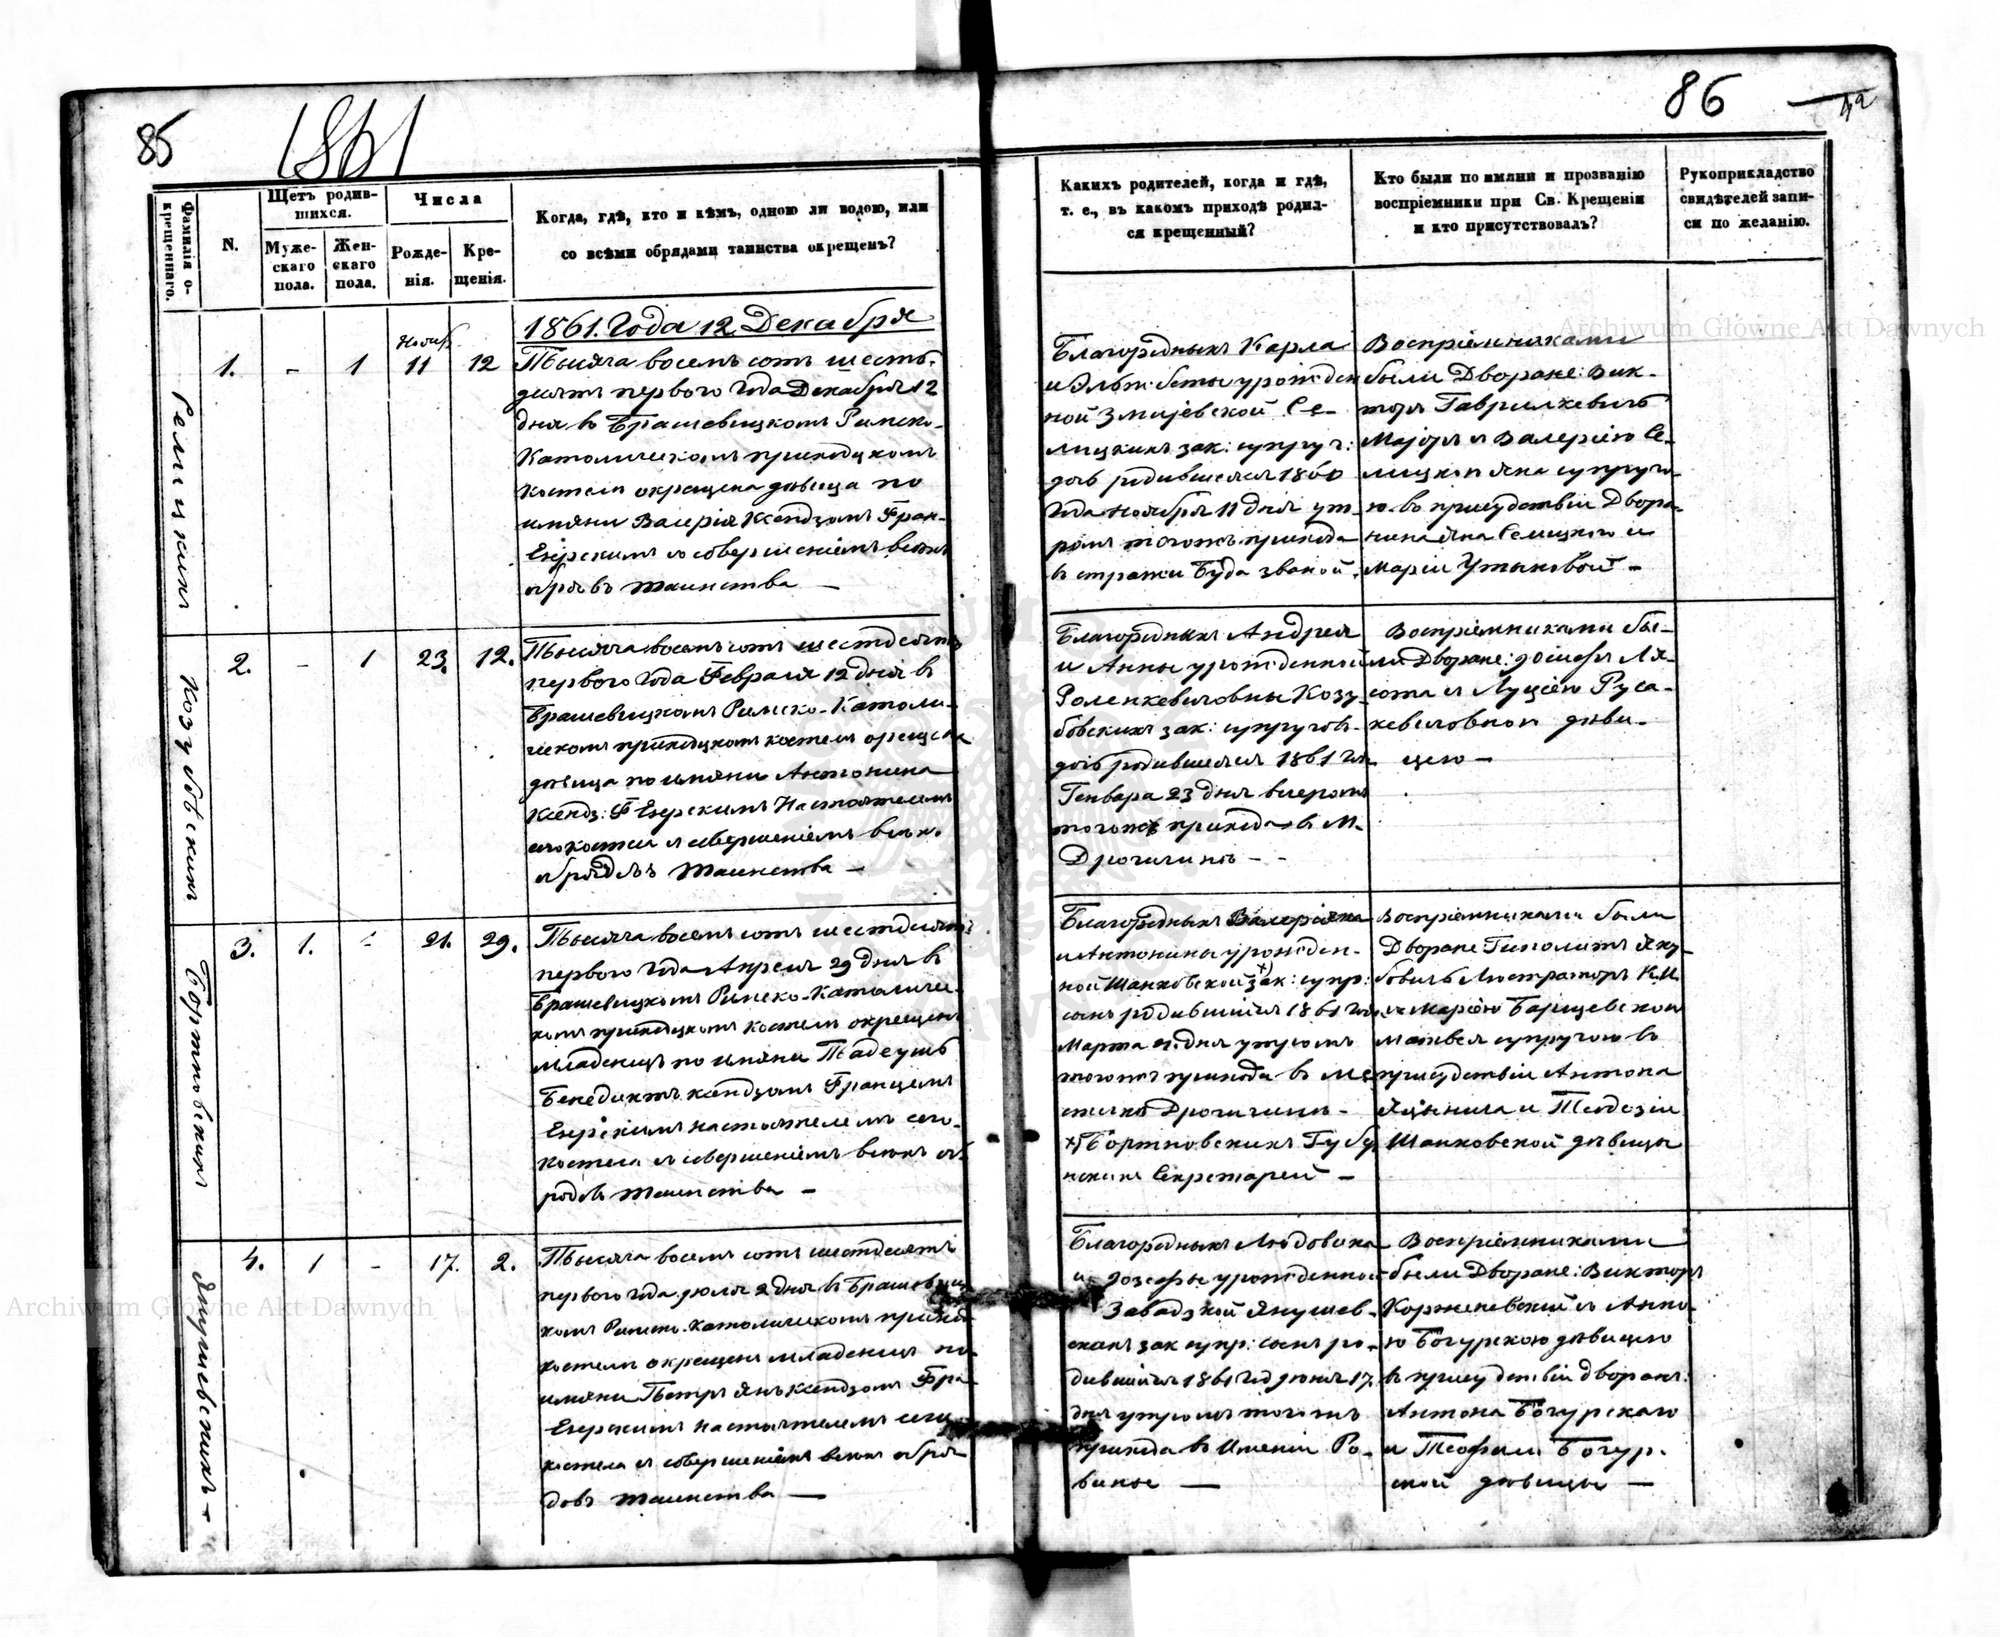 85
1861
Фамилія о-
крещеннаго.
N.
Щетъ родив-
шихся.
Муже-
скаго
пола.
Жен-
скаго
пола.
Числа
Рожде-
нія.
Кре-
щенія.
Когда, гдѣ, кто и кѣмъ, одною ли водою, или
со всѣми обрядами таинства окрещенъ?
1861. Года 12 Декабря
1.
-
1
Ноябр.
11
12
Тысяча восемъ сотъ шесть-
десятъ первого Года Декабря 12
дня въ Брашевицкомъ Римско-
Католическомъ приходскомъ
костелѣ окрещена дѣвица по
имяни Валерія Ксендзомъ Фран-
Езерскимъ с совершеніемъ всѣхъ
обрядовъ таинства —
2.
-
1
23.
12.
Козубовскихъ
Тысяча восемъ сотъ шестдесятъ
первого Года Февраля 12 дня въ
Брашевицкомъ Римско-Католи-
ческомъ приходскомъ костелѣ окрещена
дѣвица по имяни Антонина
Ксендз: Ф Езерскимъ Настоятелемъ
сего костела с совершеніемъ всѣхъ
обрядовъ Таинства —
3.
1.
-
21.
29.
Бортновскихъ
Тысяча восемъ сотъ шестдесятъ
первого Года Апреля 29 дня въ
Брашевицкомъ Римско-Католичес-
комъ приходскомъ Костелѣ окрещенъ
младенецъ по имяни Тадеушъ
Бенедиктъ ксендзомъ Францемъ
Езерскимъ настоятелемъ сего-
Костела с совершеніемъ всѣхъ об-
рядовъ таинства —
4.
1
-
17.
2.
Янушевскихъ
Тысяча восемъ сотъ шестдесятъ
первого года Іюля 2 дня въ Брашевиц-
комъ Римско-католическомъ приход-
костелѣ окрещенъ младенецъ по
имяни Петръ Янъ ксендзомъ Фра-
Езерскимъ настоятелемъ сего
костела с совершеніемъ всѣхъ обря-
довъ таинства —
86
42
Какихъ родителей, когда и гдѣ,
т. е., въ какомъ приходѣ родил-
ся крещенный?
Кто были по имяни и прозванію
воспріемники при Св. Крещеніи
и кто присутствовалъ?
Рукоприкладство
свидѣтелей запи-
си по желанію.
Благородныхъ Карла
и Эльжбеты урожден
ной Змијевской Се-
лицкихъ зак: супруг:
дочь родившаяся 1860
Года Ноября 11 дня ут-
ромъ того жъ прихода
въ стражи Буда званой.
Воспріемниками
были Дворяне: Вик-
торъ Гаврилкевичъ
Маіоръ с Валеріею Се-
лицкой Яна супруго-
ю въ присудствіи Дворя-
нина Яна Селицкого и
Маріи
Благородныхъ Андрея
и Анны урожденной
Козу-
бовскихъ зак: супруговъ
дочь родившаяся 1861 го
Генвара 23 дня вечеромъ
того жъ прихода въ М.
Дрогичинѣ —
Воспріемниками бы-
ли Дворяне: Іосифъ Ля-
сота с Луціею Руса-
кевичовной дѣви-
цею —
Благородныхъ Валеріяна
и Антонины урожден-
ной Шанковской х) зак: супр:
сынъ родившійся 1861 год
Марта 21 дня утромъ
того жъ прихода въ Мѣ
стечкѣ Дрогичинѣ —
х) Бортновскихъ Губе
нскихъ Секретарей —
Воспріемниками были
Дворяне Гиполитъ Яку-
бовичъ Люстраторъ К.И.
с Маріею Барщевской
Матвея супругою въ
присудствіи Антона
и Теодозіи
Шанковской дѣвицы
Благородныхъ Людовика
и Іозефы урожденной
Завадзкой Янушев-
скихъ зак супр: сынъ ро-
дившійся 1861 год Іюня 17
дня утромъ того жъ
прихода въ Имѣніи Ро-
винѣ —
Воспріемниками
были Дворяне: Викторъ
Корженевскій с Анно-
ю Богурскою дѣвицею
въ присудствіи дворянъ:
Антона Богурскаго
и Теофили Богур-
ской дѣвицы —
Archiwum Główne Akt Dawnych
Archiwum Główne Akt Dawnych